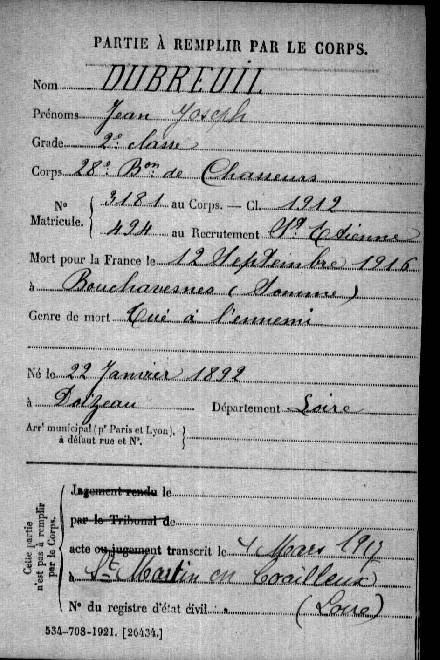 PARTIE À REMPLIR PAR LE CORPS.
Nom DUBREUIL
Prénoms Jean Joseph
Grade 2e classe
Corps 28e Bon de Chasseurs
No 3181 au Corps. — Cl. 1912
Matricule. 424 au Recrutement St Etienne
Mort pour la France le 12 Septembre 1916
à Bouchavesnes (Somme)
Genre de mort Tué à l'ennemi
Né le 22 Janvier 1892
à Doizeau Département Loire
Arrt municipal (pr Paris et Lyon),
à défaut rue et No.
Cette partie
n'est pas à remplir
par le Corps.
Jugement rendu le
par le Tribunal de
acte ou jugement transcrit le 4 Mars 1917
à St Martin en Coailleux
(Loire)
No du registre d'état civil
534-708-1921. [26434.]